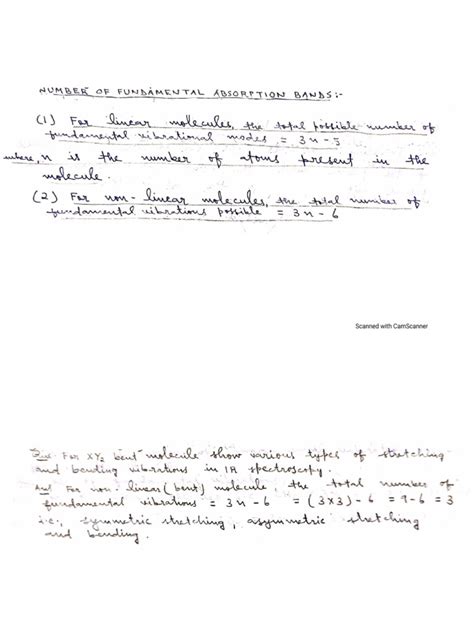 NUMBER OF FUNDAMENTAL ABSORPTION BANDS:-
(1) For linear molecules, the total possible number of
fundamental vibrational modes = 3n-5
where, n is the number of atoms present in the
molecule.
(2) For non-linear molecules, the total number of
fundamental vibrations possible = 3n-6
Scanned with CamScanner
For XY2 bent molecule show various types of stretching
and bending vibrations in IR spectroscopy.
Ans For non-linear (bent) molecule, the total number of
fundamental vibrations = 3n-6 = (3x3)-6 = 9-6 = 3
i.e., symmetric stretching, asymmetric stretching
and bending.